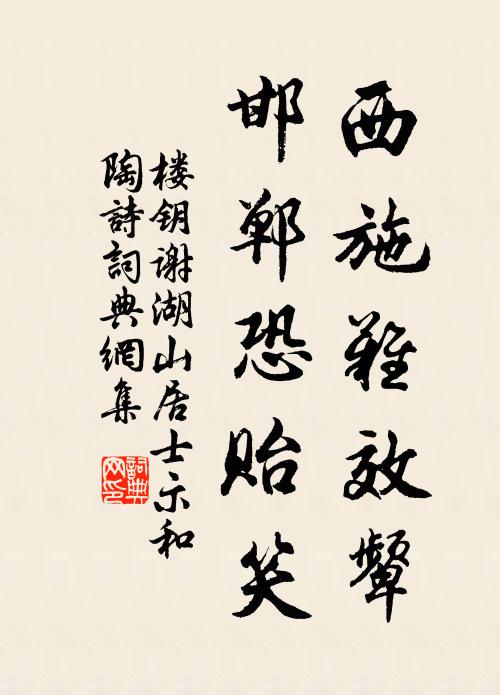 西施難效顰
邯鄲恐貽笑
楼钥谢湖山居士示和
陶詩詞典網集
詞典
网印